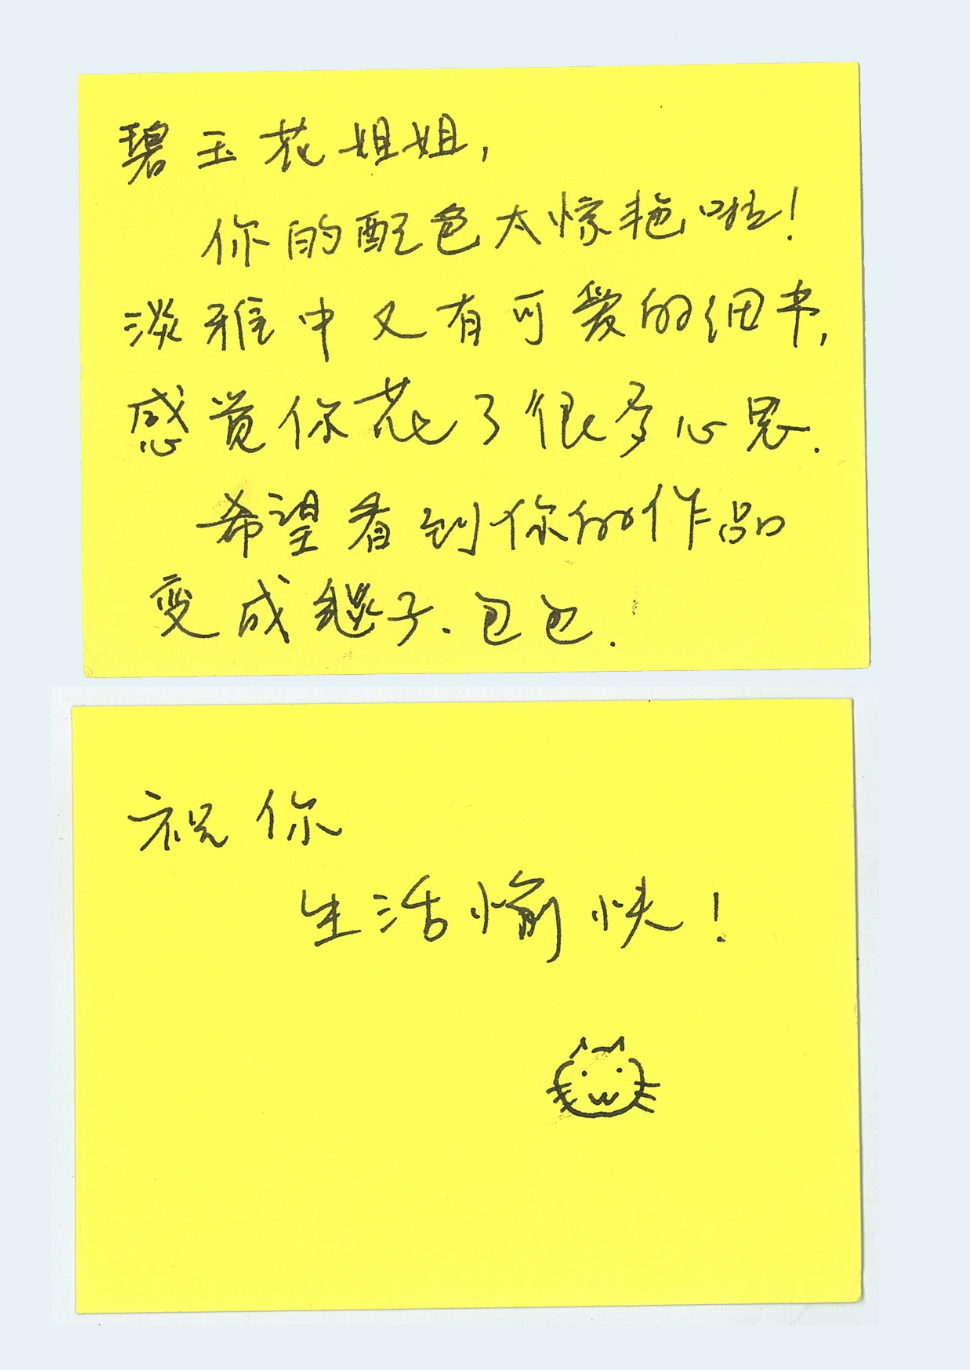 碧玉花姐姐,
你的配色太惊艳啦!
淡雅中又有可爱的细节,
感觉你花了很多心思.
希望看到你的作品
变成毯子、包包.
祝你
生活愉快!